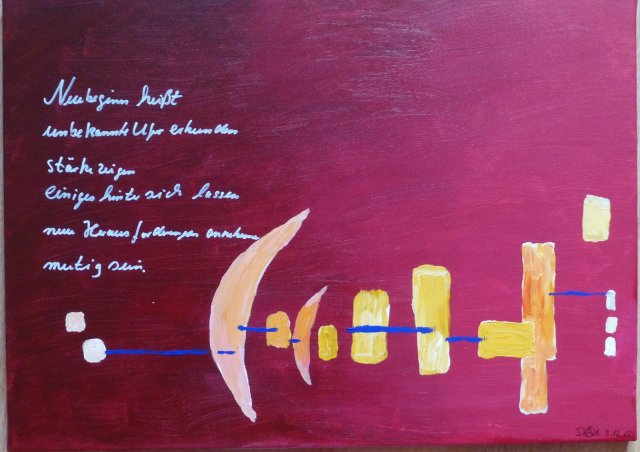 Neubeginn heißt
unbekannte Ufer erkunden
Stärke zeigen
einiges hinter sich lassen
neue Herausforderungen annehmen
mutig sein.